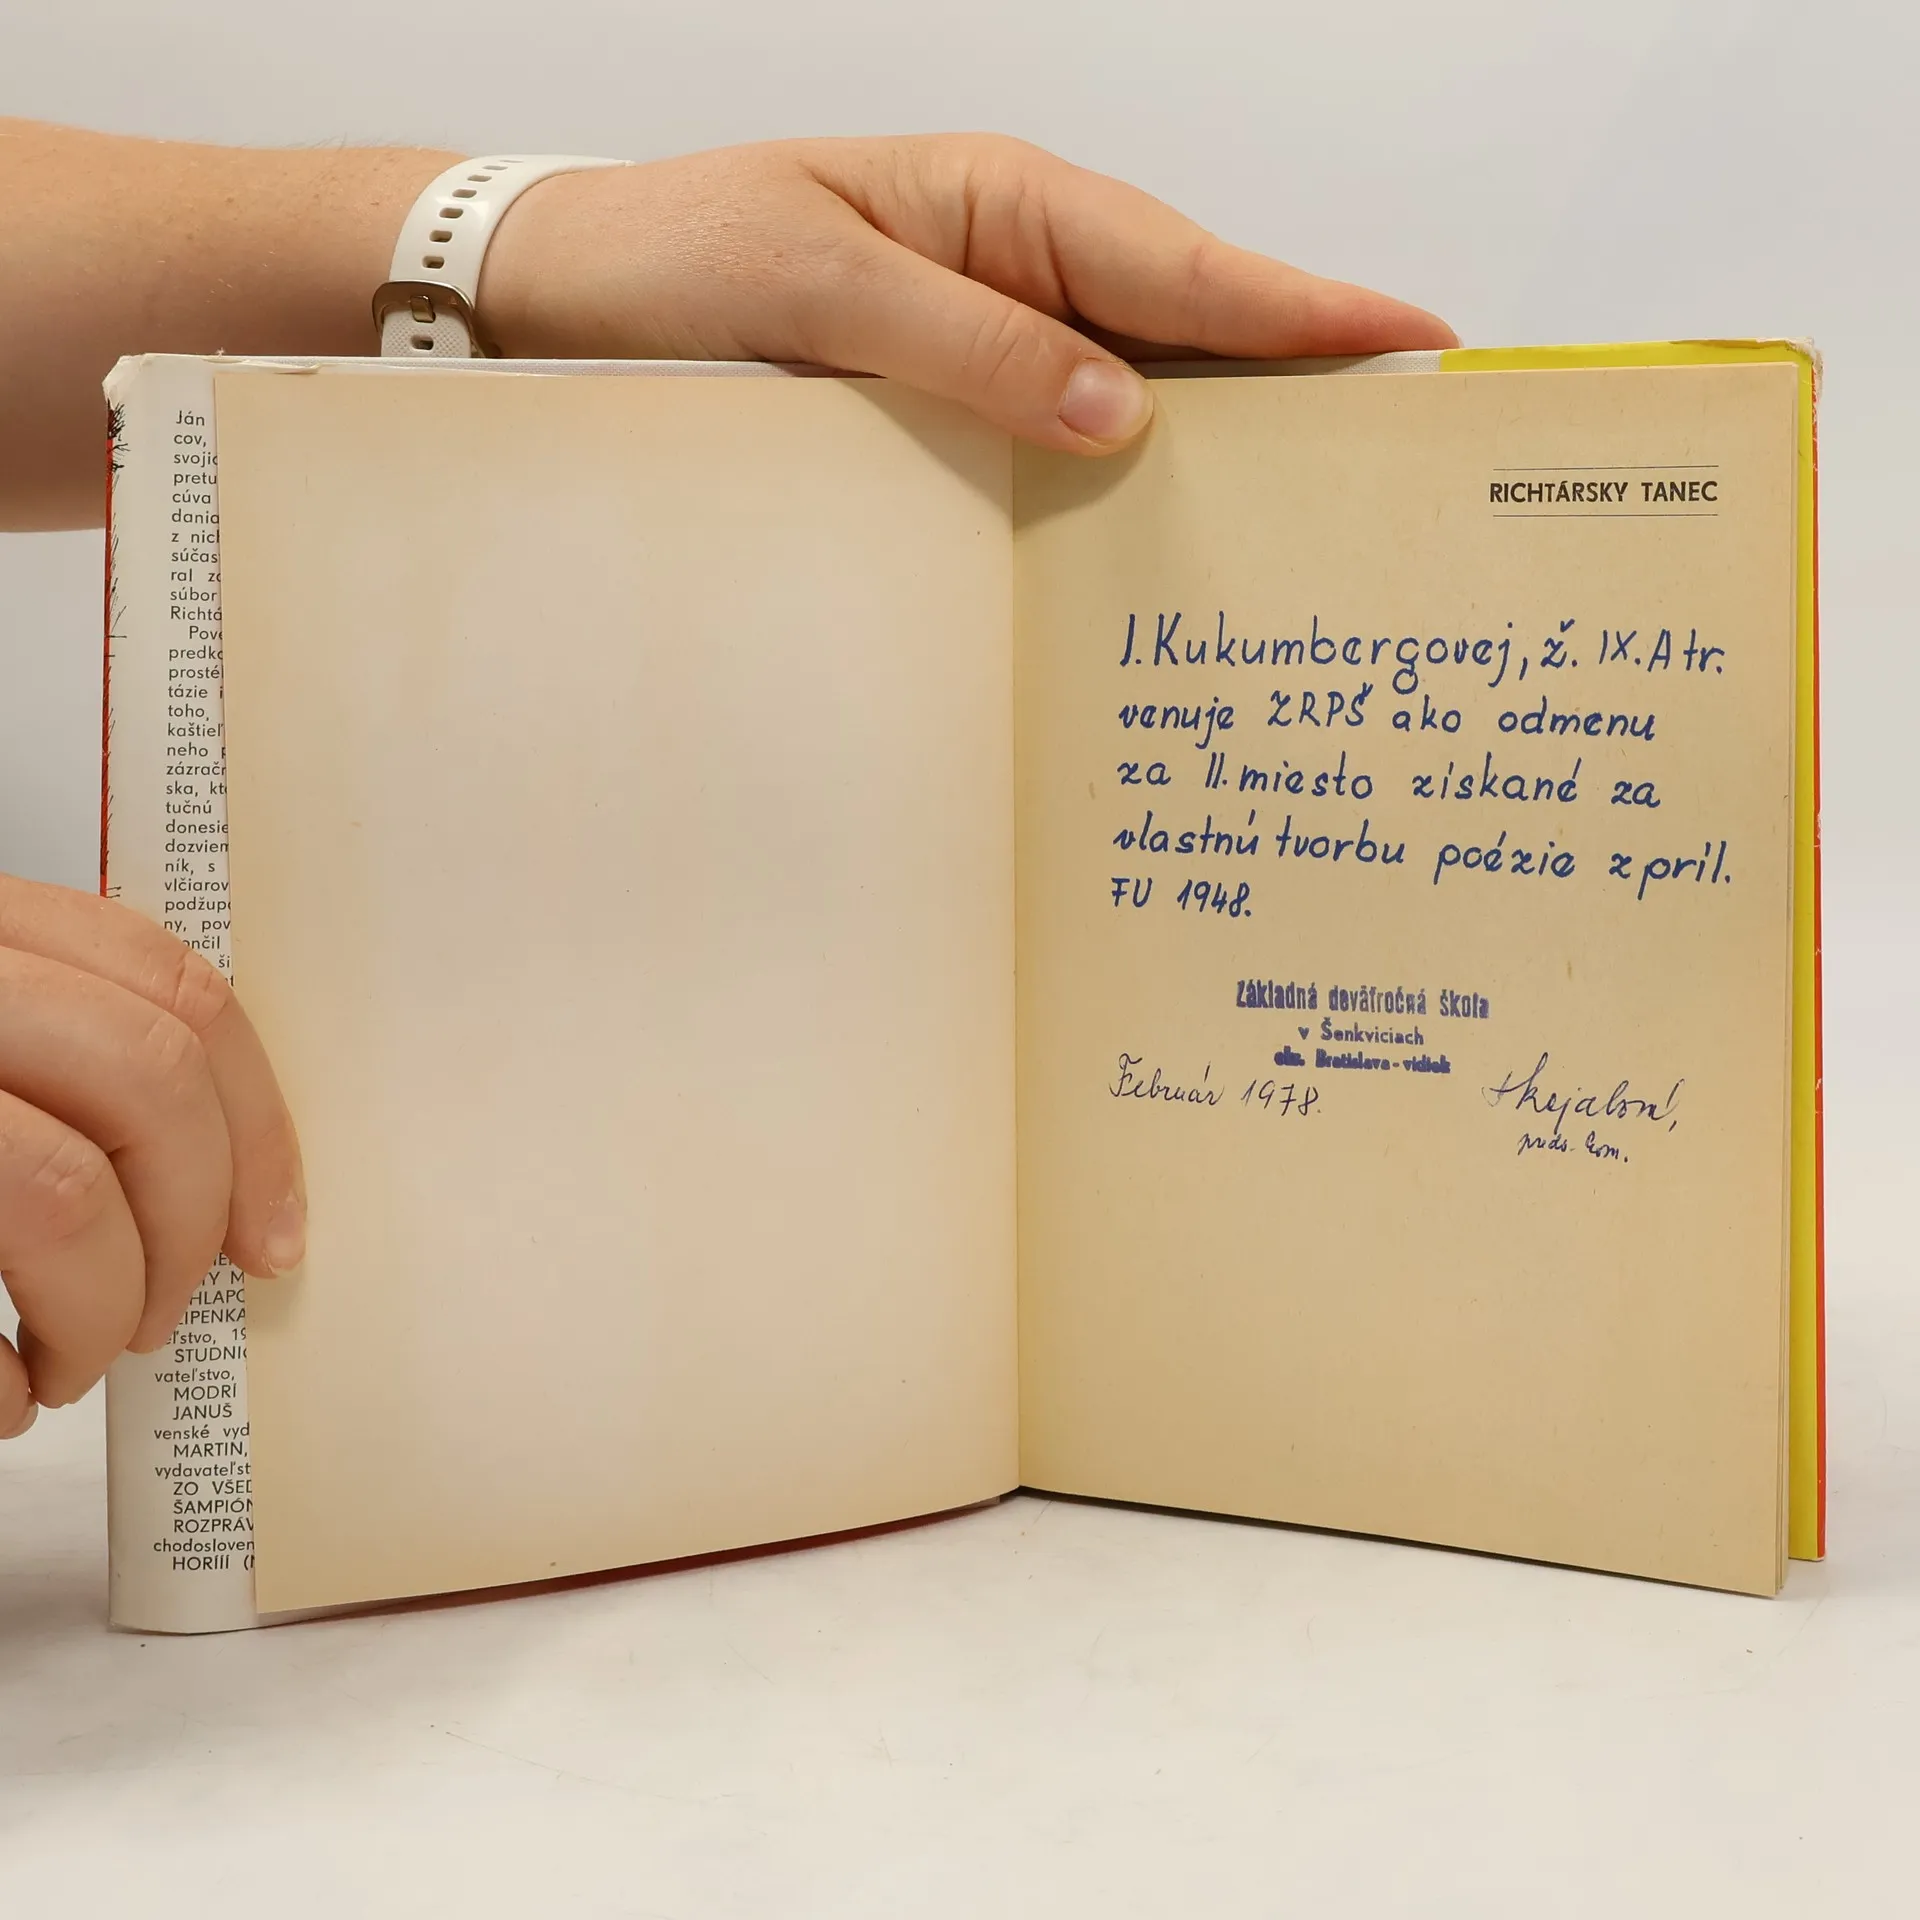 Ján
cov,
svojic
pretu
cúva
dania
z nich
súčas
ral zo
súbor
Richtá
Pove
predko
prosté
tázie i
toho,
kaštieľ
neho p
zázračn
ska, kto
tučnú
donesie
dozviem
ník, s
vlčiarov
podžupa
ny, pov
ončil
ši
TY M
HLAPC
LIPENKA
eľstvo, 19
STUDNIC
vateľstvo,
MODRÍ
JANUŠ
venské vyd
MARTIN,
vydavateľst
ZO VŠED
ŠAMPIÓN
ROZPRÁV
chodosloven
HORÍÍÍ (
RICHTÁRSKY TANEC
I. Kukumbergovej, ž. IX. A tr.
venuje ZRPŠ ako odmenu
za II. miesto získané za
vlastnú tvorbu poézie z príl.
FU 1948.
Základná deväťročná škola
v Šenkviciach
okr. Bratislava - vidiek
Február 1978.
preds. kom.